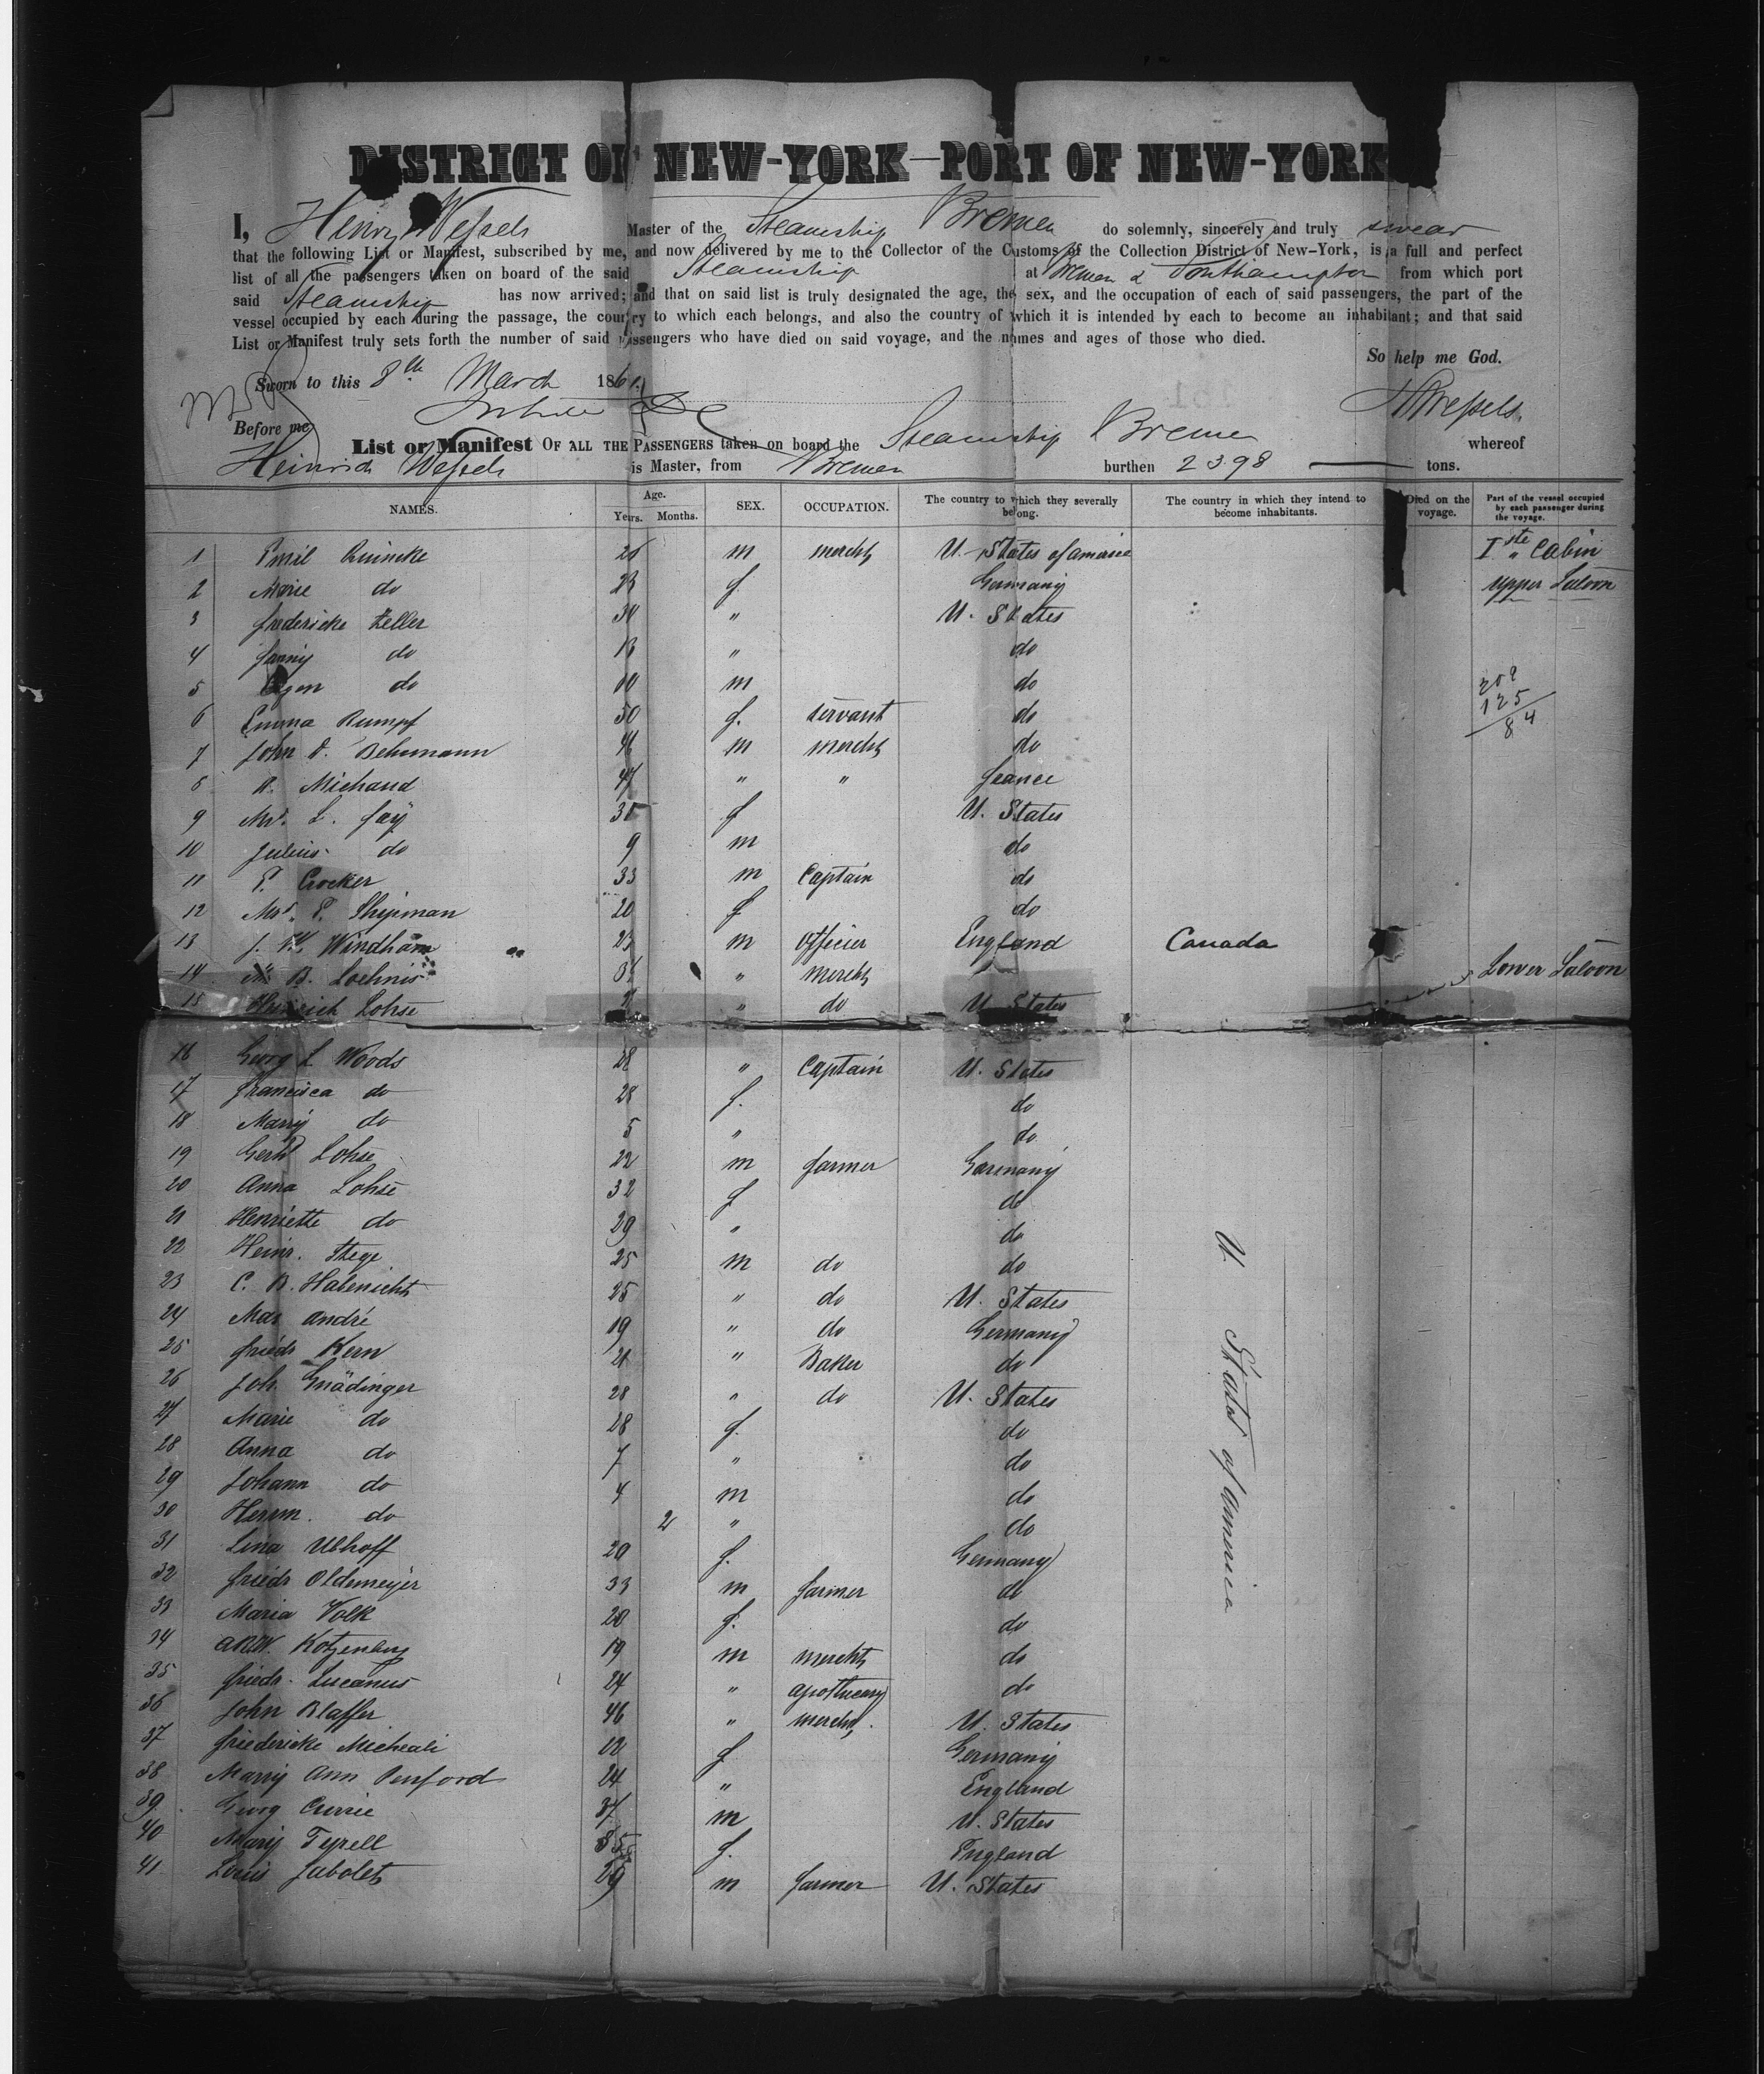 DISTRICT OF NEW-YORK—PORT OF NEW-YORK
I, Henry Wessels Master of the Steamship Bremen do solemnly, sincerely and truly swear
that the following List or Manifest, subscribed by me, and now delivered by me to the Collector of the Customs of the Collection District of New-York, is a full and perfect
list of all the passengers taken on board of the said Steamship at Bremen & Southampton from which port
said Steamship has now arrived; and that on said list is truly designated the age, the sex, and the occupation of each of said passengers, the part of the
vessel occupied by each during the passage, the country to which each belongs, and also the country of which it is intended by each to become an inhabitant; and that said
List or Manifest truly sets forth the number of said passengers who have died on said voyage, and the names and ages of those who died.
So help me God.
Sworn to this 8th March 186
HWessels.
Before me
List or Manifest OF ALL THE PASSENGERS taken on board the Steamship Bremen whereof
Heinrich Wessels is Master, from Bremen burthen 2398 — tons.
NAMES. Age. Years. Months. SEX. OCCUPATION. The country to which they severally belong. The country in which they intend to become inhabitants. Died on the voyage. Part of the vessel occupied by each passenger during the voyage.
1 Emil Quincke 26 m merchts U. States of america Iste Cabin
2 Marie do 23 f. Germany upper Saloon
3 frederike Zeller 30 " U. States
4 fanny do 13 " do
5 do 10 m do 208
6 Emma Rumpf 50 f. servant do 125
7 John d. Behrmann 46 m merchts do 84
8 A. Michaud 47 " " france
9 Mrs. L. fay 35 f U. States
10 Julius do 9 m do
11 E. Crocker 33 m Captain do
12 Mrs. E. Shipman 20 f do
13 J. Windham 23 m officier England Canada
14 B. Loehnis " merchts Lower Saloon
15 Heinrich Lohse " do U. States
16 Georg L Woods 28 " Captain U. States
17 francisca do 28 f. do
18 Marry do 5 " do
19 Gerhd Lohse 22 m farmer Germany
20 Anna Lohse 32 f do
21 Henriette do 29 " do
22 Heinr. Stege 25 m do do
23 C. B. Habenicht 25 " do U. States
24 Max andré 19 " do Germany
25 friedr Kern 21 " Baker do
26 Joh. Gnädinger 28 " do U. States
27 Marie do 28 f. do
28 Anna do 7 " do
29 Johann do 4 m do
30 Herrm. do 2 " do
31 Lina Ulhoff 20 f. Germany
32 friedr Oldemeyer 33 m farmer do
33 Maria Volk 20 f. do
34 Kotzenberg 19 m merchts do
35 friedr. Lucanus 24 " apothecary do
36 John Blaffer 46 " merchts. U. States
37 friedericke Micheali 22 f Germany
38 Marry Ann Penford 24 " England
39 Georg Currie 37 m U. States
40 Mary Tyrell f. England
41 Louis Jabolet 29 m farmer U. States
U. States of america